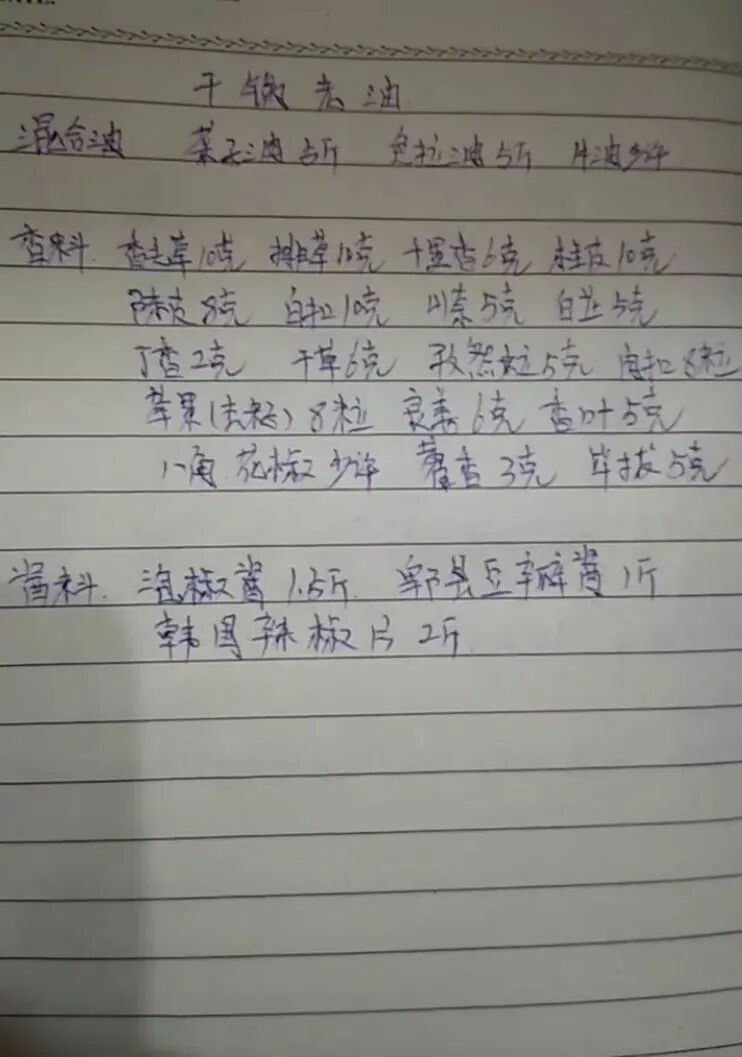 干锅老油
混合油 菜子油5斤 色拉油5斤 牛油少许
香料 香毛草10克 排草10克 千里香6克 桂皮10克
陈皮8克 白扣10克 山奈5克 白芷5克
丁香2克 干草6克 孜然粒5克 肉扣8粒
草果(去籽)8粒 良姜6克 香叶5克
八角 花椒少许 藿香3克 毕拔5克
酱料 泡椒酱1.5斤 郫县豆瓣酱1斤
韩国辣椒片2斤